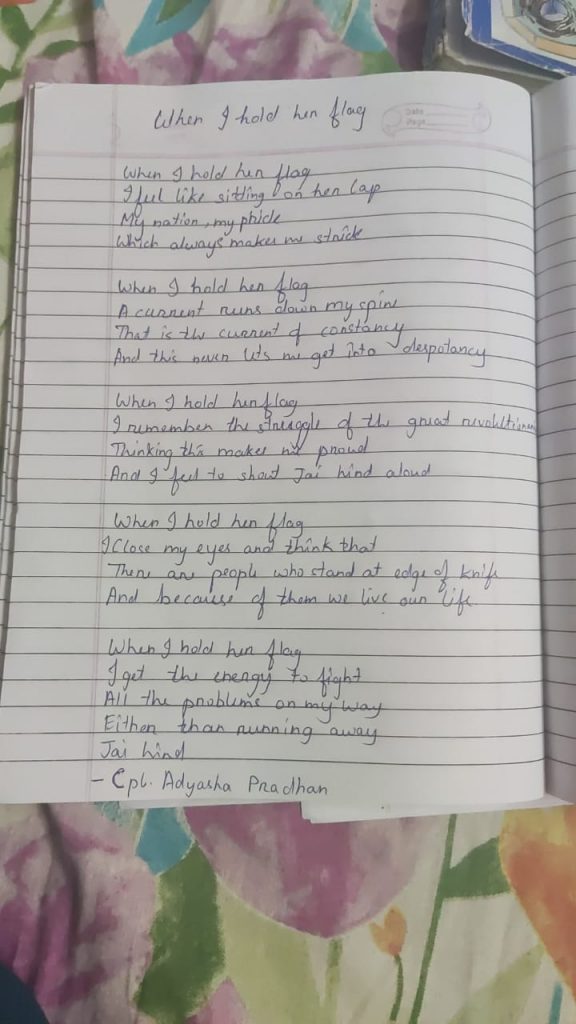 When I hold her flag
Date
Page
When I hold her flag
I feel like sitting on her lap
My nation, my phide
Which always makes me stride
When I hold her flag
A current runs down my spine
That is the current of constancy
And this never lets me get into despotancy
When I hold her flag
I remember the struggle of the great revolutionary
Thinking this makes me proud
And I feel to shout Jai hind aloud
When I hold her flag
I Close my eyes and think that
There are people who stand at edge of knife
And because of them we live our life.
When I hold her flag
I get the energy to fight
All the problems on my way
Either than running away
Jai hind
- Cpl. Adyasha Pradhan